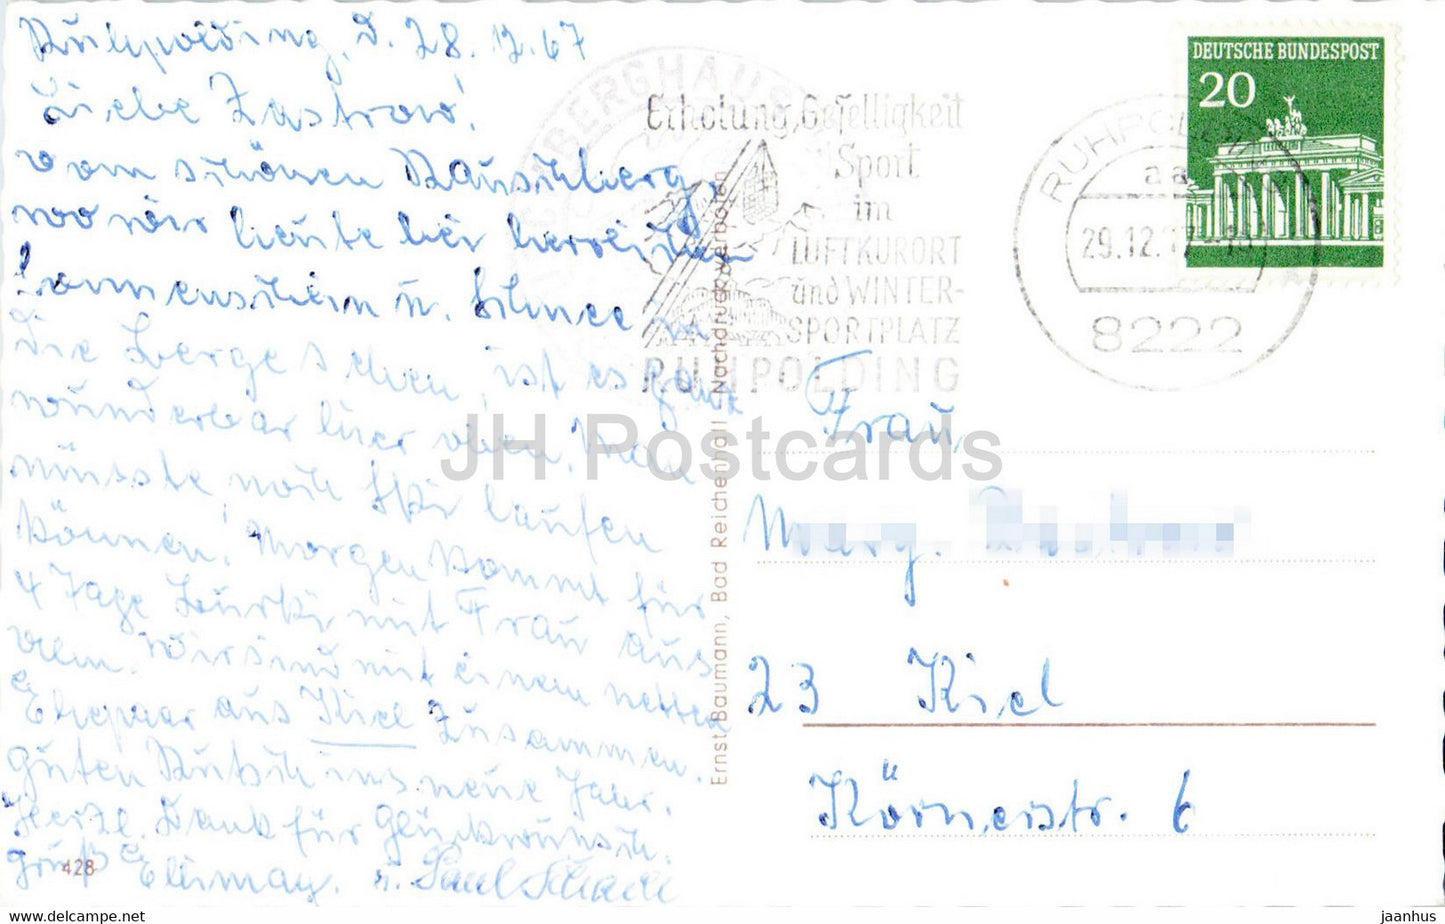 Ruhpolding, d. 28.12.67
Liebe Zastrow!
vom schönen Rauschberg,
wo wir heute bei herrlichen
Sonnenschein u. Schnee in
die Berge sehen, ist es ganz
wunderbar hier oben. Man
müsste noch Ski laufen
können! Morgen kommt für
4 Tage mit Frau aus
Wir sind mit einem netten
Ehepaar aus Kiel zusammen.
Guten Rutsch ins neue Jahr.
Herzl. Dank für Glückwünsche.
Gruß u. Paul
428
Ernst Baumann, Bad Reichenhall Nachdruck verboten
Erholung, Geselligkeit
Sport
im
LUFTKURORT
und WINTER-
SPORTPLATZ
RUHPOLDING
RUHPOLDING
aa
29.12.
8222
DEUTSCHE BUNDESPOST
20
Frau
Marg.
23 Kiel
Körnerstr. 6
JH Postcards
https://www.delcampe.net
jaanhus